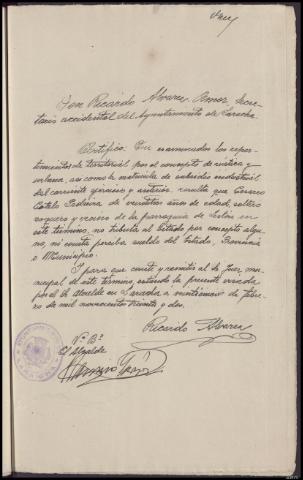 Don Ricardo Alvarez Amor, Secre-
tario accidental del Ayuntamiento de Laracha.
Certifico: Que examinados los repar-
timientos de territorial por el concepto de rústica y
urbana, así como la matrícula de subsidio industrial
del corriente ejercicio y anterior, resulta que
de años de edad, soltero
y vecino de la parroquia de en
este término, no tributa al Estado por concepto algu-
no, ni consta perciba sueldo del Estado, Provincia
o Municipio.
Y para que conste y remitir al Sr. Juez mu-
nicipal de este término, extiendo la presente visada
por el Sr. Alcalde en Laracha a de febre-
ro de mil novecientos treinta y dos.
Ricardo Alvarez
Vº Bº
El Alcalde